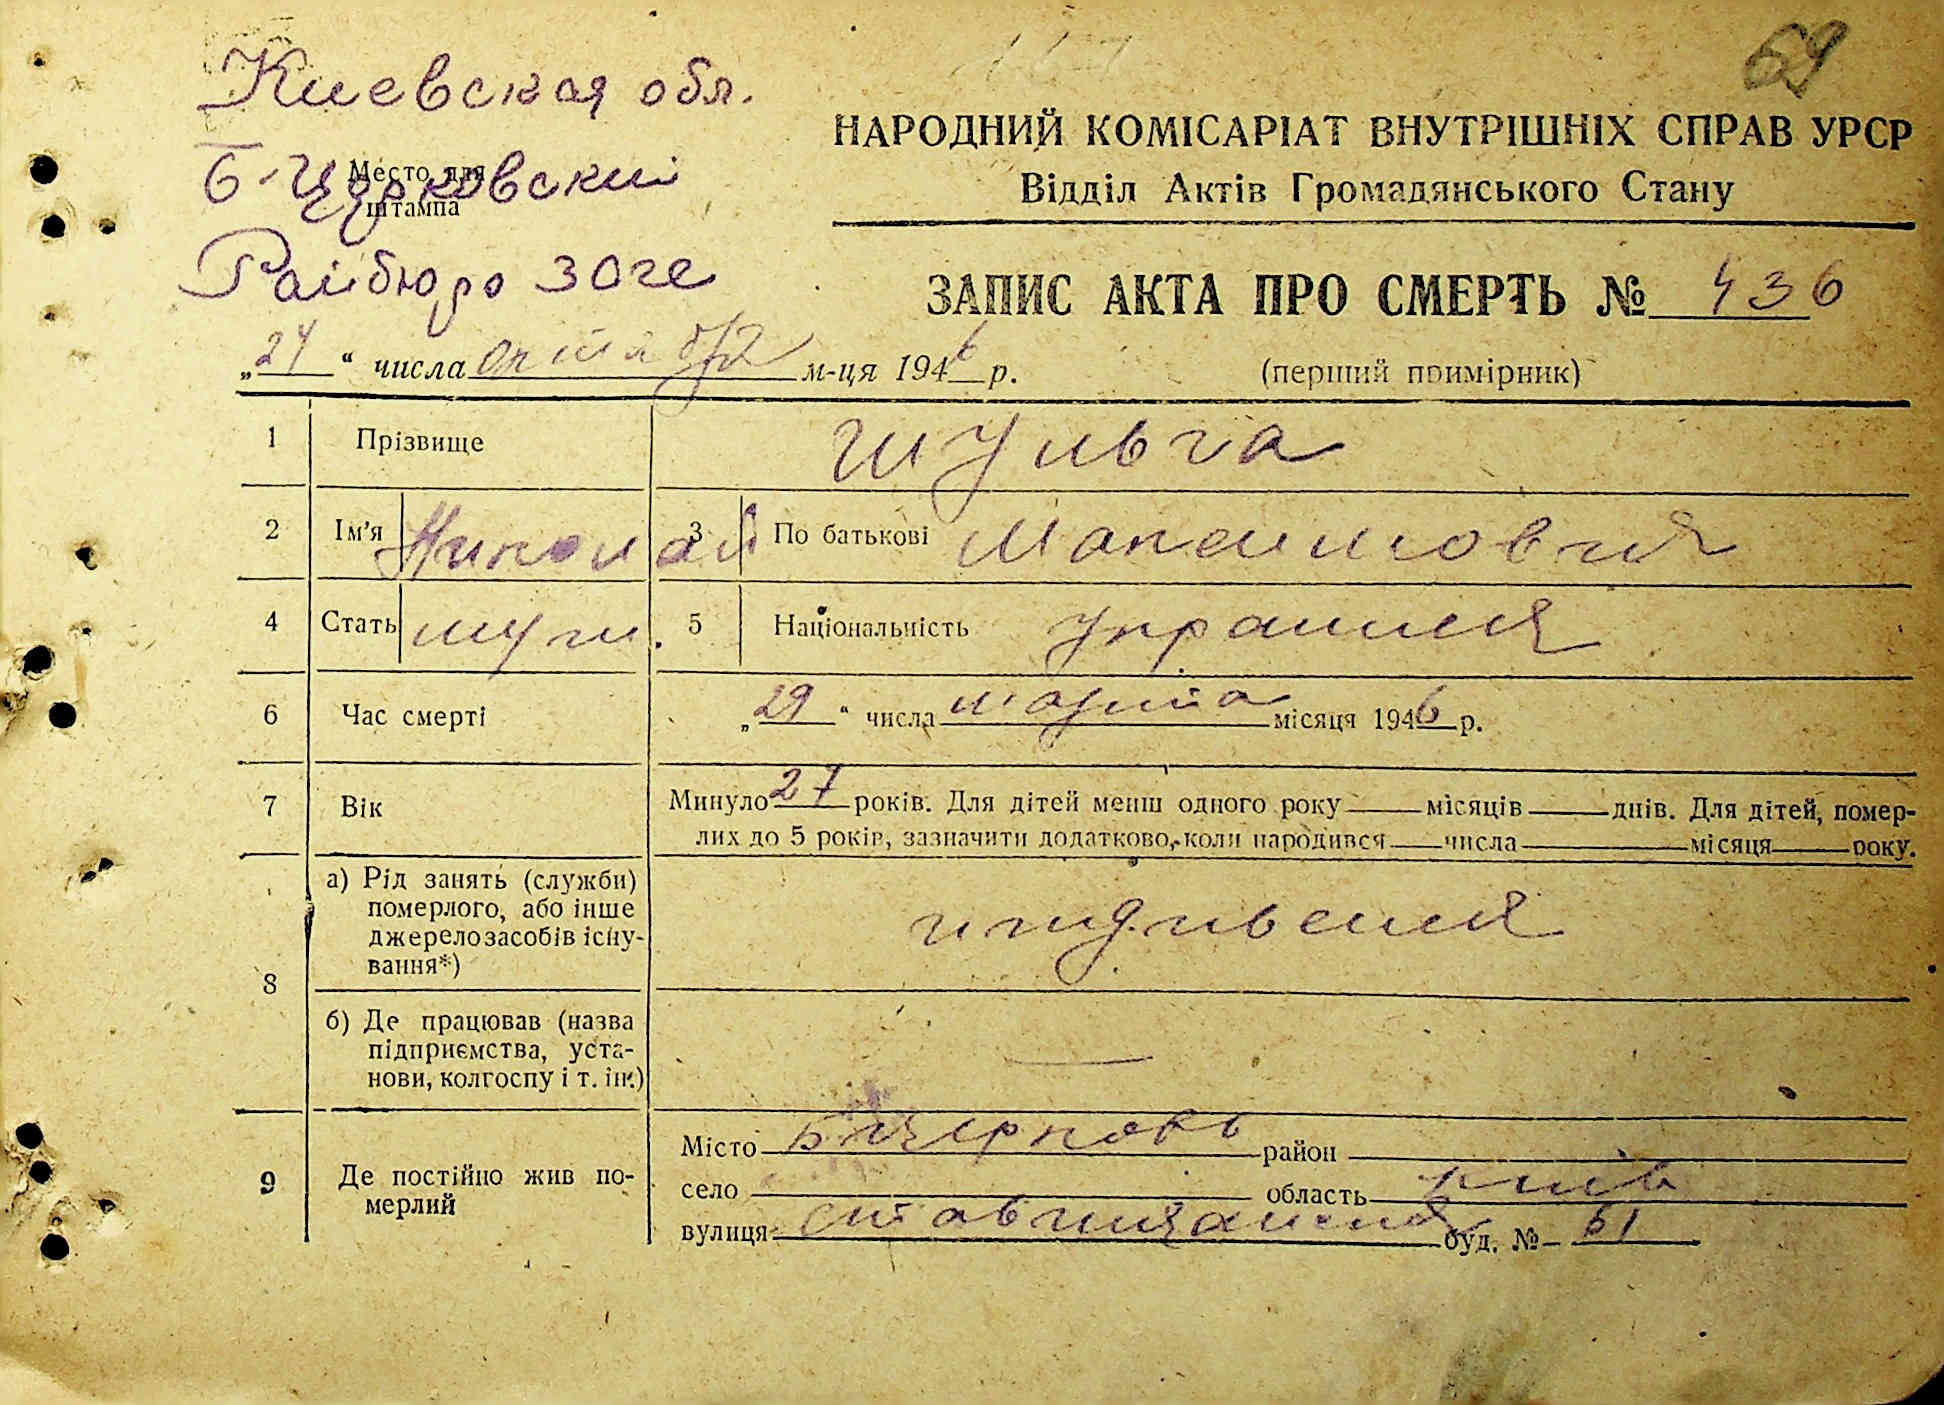 69
Киевская обл.
Б-Церковский
Место для
штампа
Райбюро загс
НАРОДНИЙ КОМІСАРІАТ ВНУТРІШНІХ СПРАВ УРСР
Відділ Актів Громадянського Стану
ЗАПИС АКТА ПРО СМЕРТЬ № 436
„24“ числа октября м-ця 1946 р. (перший примірник)
1 Прізвище Шульга
2 Ім'я Николай 3 По батькові Максимович
4 Стать муж. 5 Національність украинец
6 Час смерті „29“ числа марта місяця 1946 р.
7 Вік Минуло 27 років. Для дітей менш одного року місяців днів. Для дітей, помер-
лих до 5 років, зазначити додатково, коли народився числа місяця року.
8 а) Рід занять (служби)
померлого, або інше
джерело засобів існу-
вання*)
иждивенец
б) Де працював (назва
підприємства, уста-
нови, колгоспу і т. ін.) —
9 Де постійно жив по-
мерлий
Місто Б Церковь район
село область Київ
вулиця буд. № 51